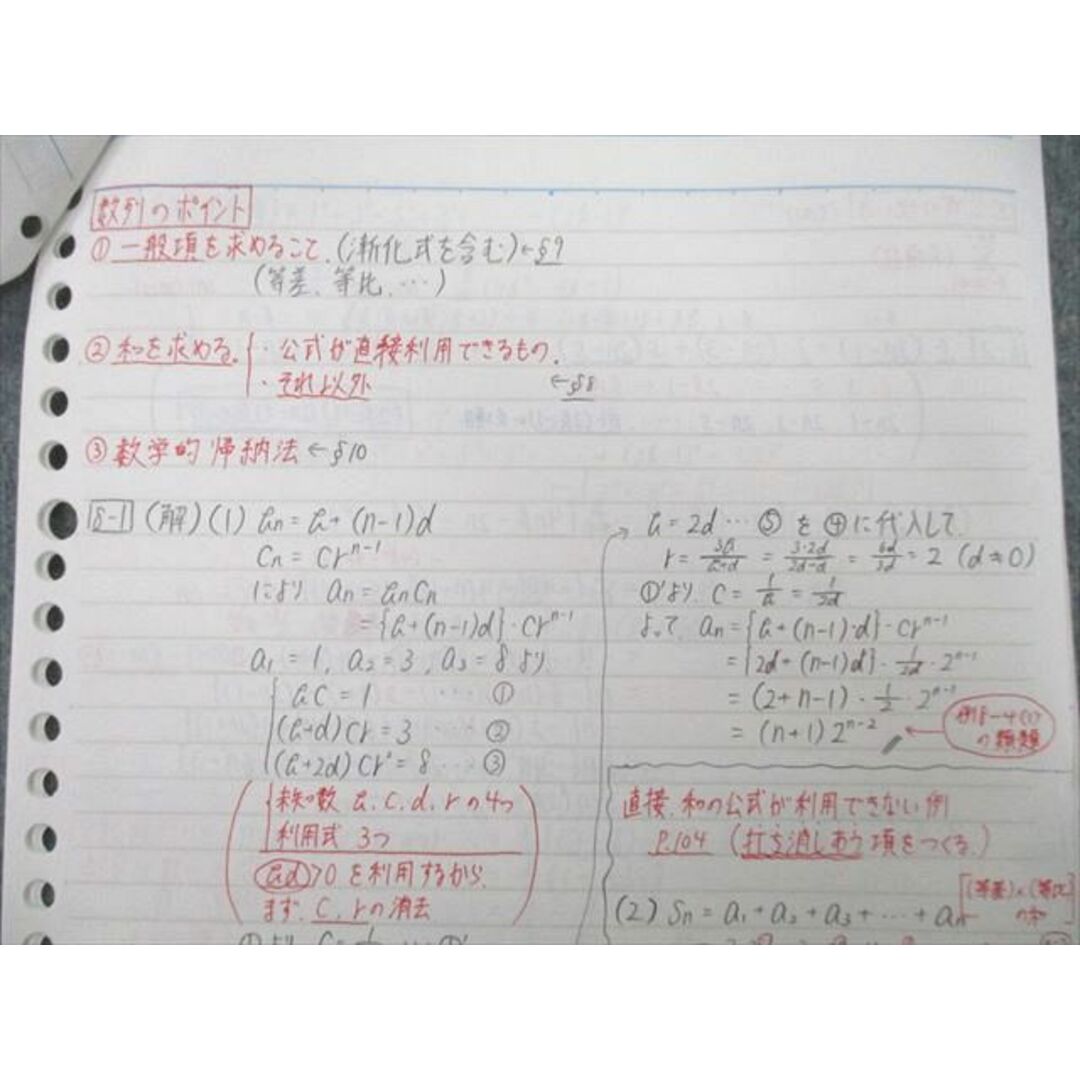 数列のポイント
① 一般項を求めること.(漸化式を含む)←§9
(等差、等比、…)
② 和を求める.{・公式が直接利用できるもの.
・それ以外 ←§8
③ 数学的帰納法 ←§10
8-1 (解)(1) bn = b + (n-1)d
Cn = Cr^{n-1}
により an = bnCn
= {b + (n-1)d}・Cr^{n-1}
a1 = 1, a2 = 3, a3 = 8 より
bC = 1 … ①
(b+d)Cr = 3 ②
(b+2d)Cr² = 8 … ③
未知数 b, C, d, r の4つ
利用式 3つ
bd>0 を利用するから
まず C, r の消去
①より C =
→ b = 2d … ⑤ を ④ に代入して
r = 3b/(b+d) = 3・2d/(2d+d) = 6d/3d = 2 (d≠0)
①'より C = 1/b = 1/2d
よって an = {b + (n-1)・d}・Cr^{n-1}
= {2d + (n-1)d}・1/2d・2^{n-1}
= (2+n-1)・1/2・2^{n-1}
= (n+1)2^{n-2}
例8-4(1)
の類題
直接、和の公式が利用できない例
P.104 (打ち消しあう項をつくる.)
(2) Sn = a1 + a2 + a3 + … + an
(等差)×(等比)
の和